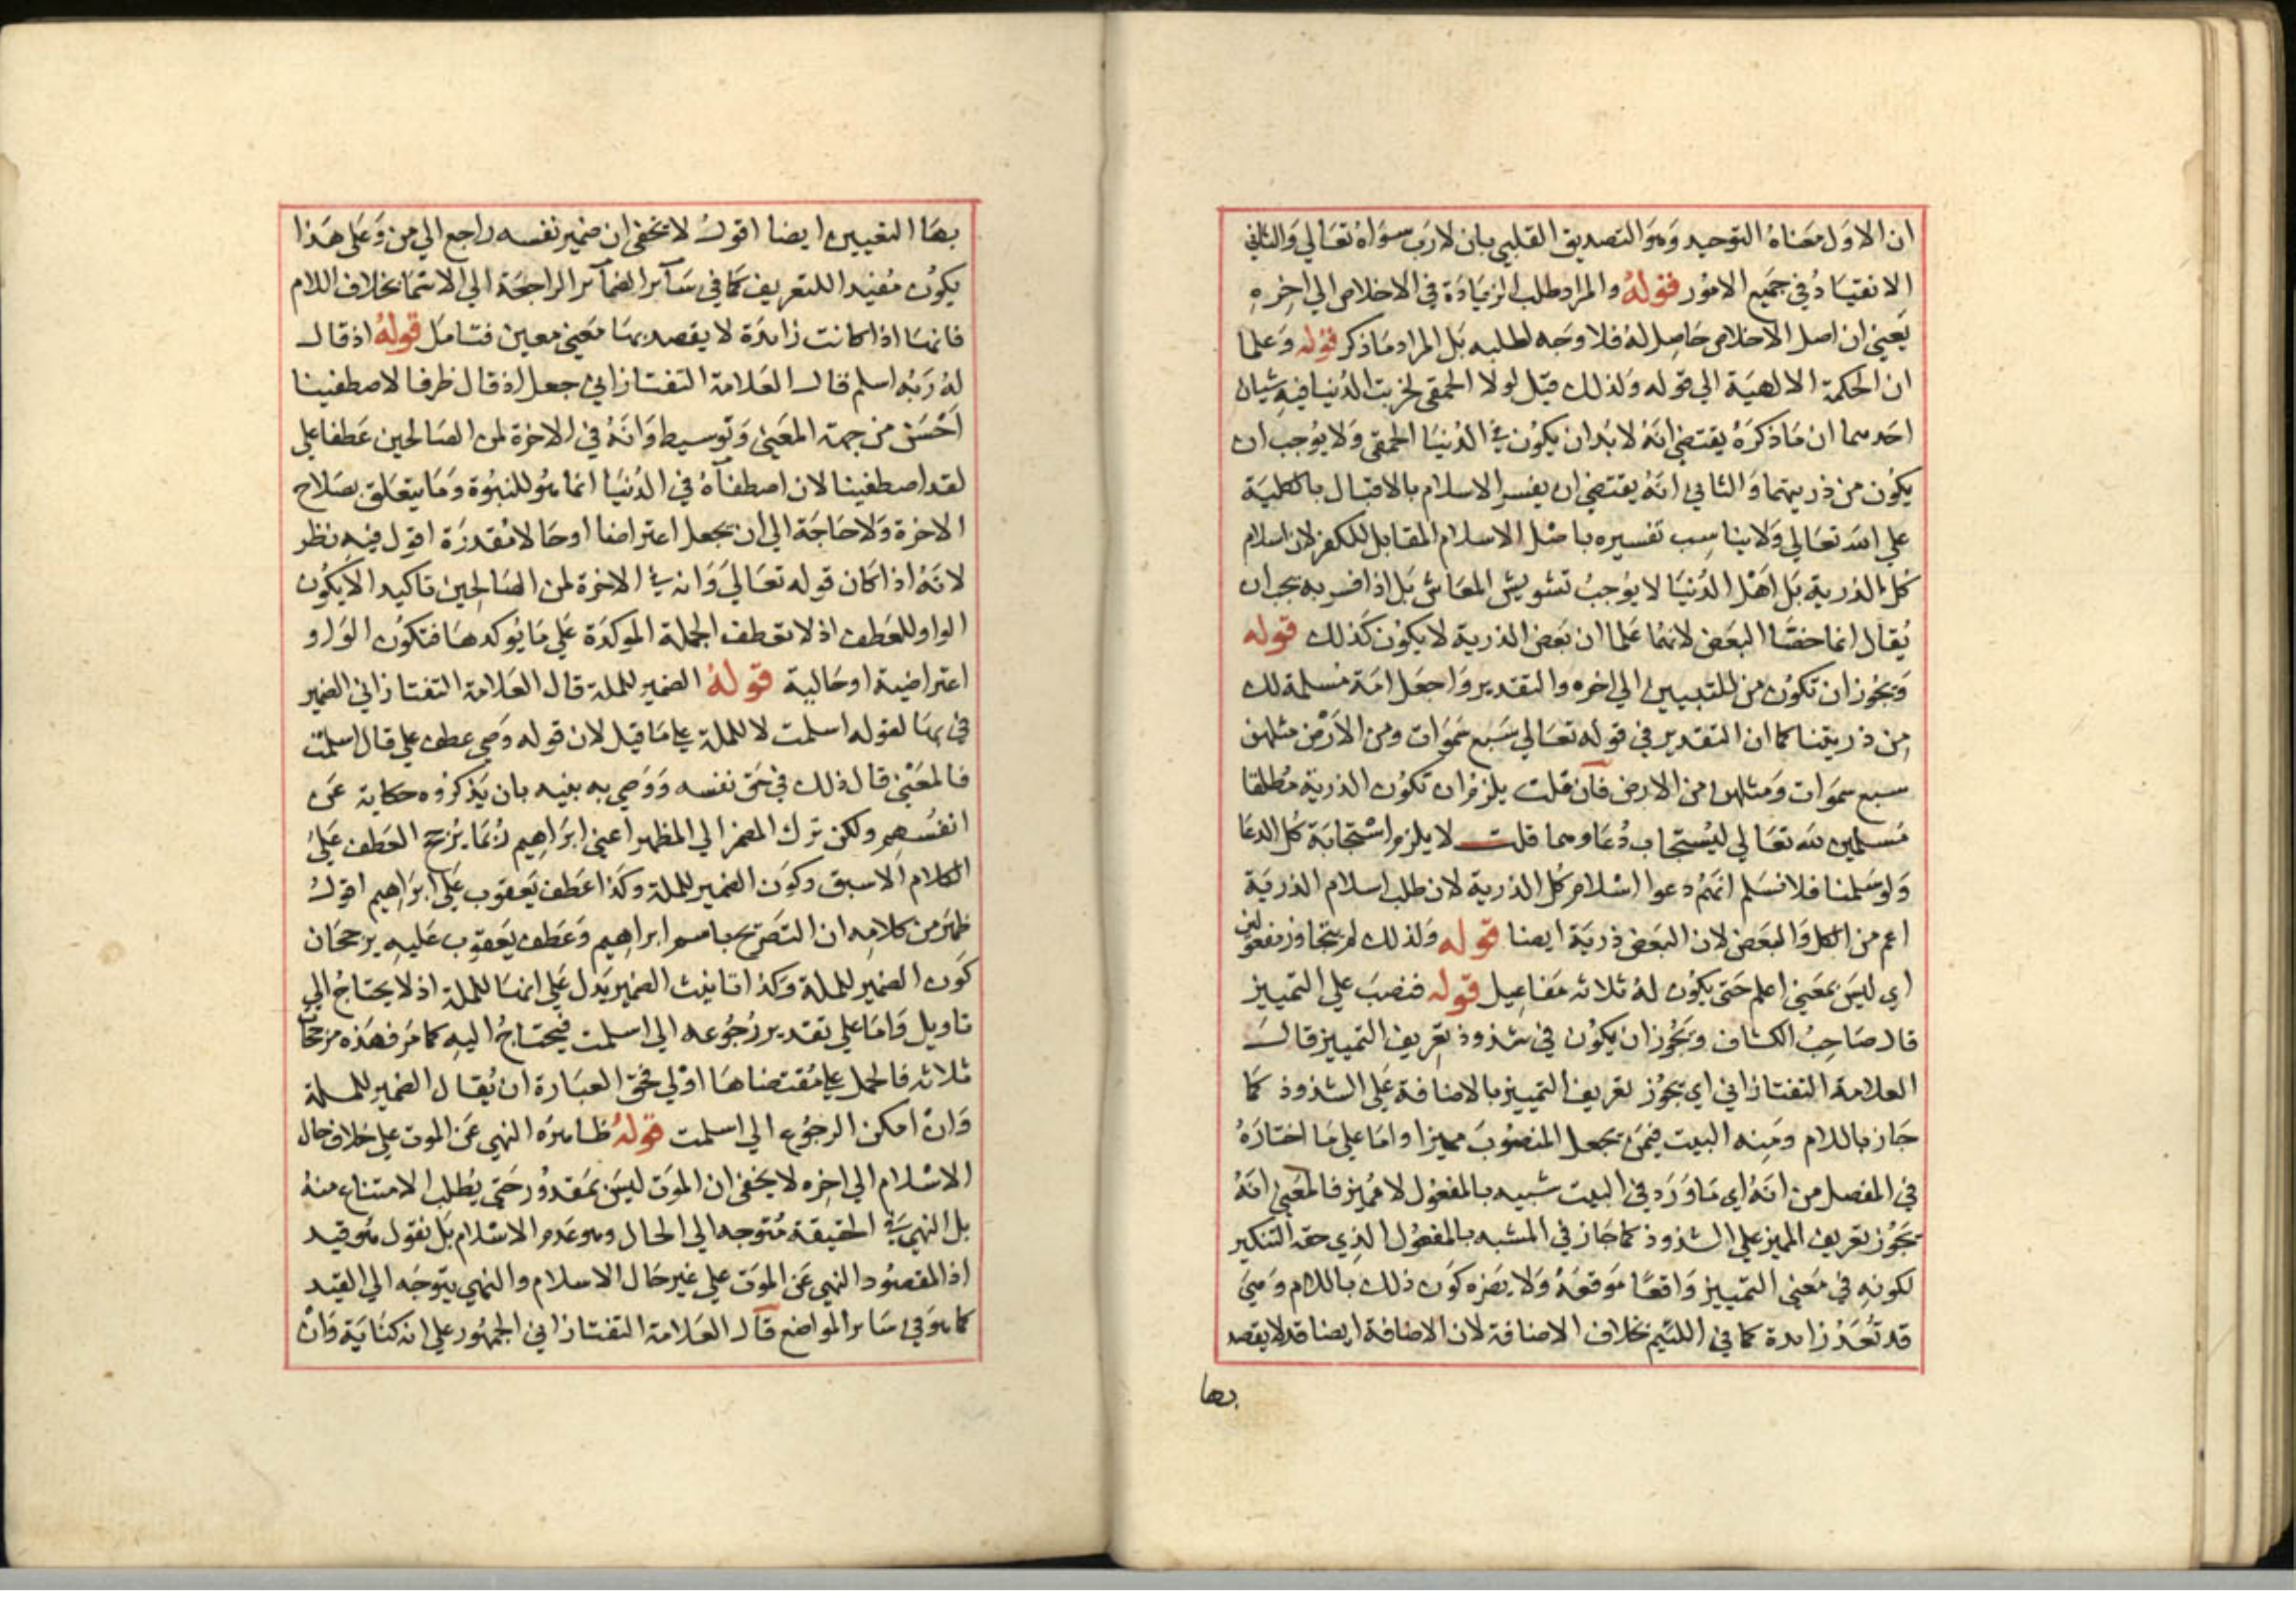 ان الاول معناه التوحيد وهو التصديق القلبي بان لا رب سواه تعالي والثاني
الانقياد في جميع الامور قوله والمراد طلب الزيادة في الاخلاص الي اخره
يعني ان اصل الاخلاص حاصل له فلا وجه لطلبه بل المراد ما ذكر قوله وعلما
ان الحكمة الالهية الي قوله ولذلك قيل لولا الحمقي لخربت الدنيا فيه شيان
احدهما ان ما ذكره يقتضي انه لا بد ان يكون في الدنيا الحمقي ولا يوجب ان
يكون من ذريتهما والثاني انه يقتضي ان يفسر الاسلام بالاقبال بالكلية
علي الله تعالي ولا يناسب تفسيره باصل الاسلام المقابل للكفر لان اسلام
كل الذرية بل اهل الدنيا لا يوجب تشويش المعاش بل اذا فسر به يجب ان
يقال انما خصا البعض لانهما علما ان بعض الذرية لا يكون كذلك قوله
ويجوز ان تكون من للتبيين الي اخره والتقدير واجعل امة مسلمة لك
من ذريتنا كما ان التقدير في قوله تعالي سبع سموات ومن الارض مثلهن
سبع سموات ومثلهن من الارض فان قلت يلزم ان تكون الذرية مطلقا
مسلمين لله تعالي ليستجاب دعاوهما قلت لا يلزم استجابة كل الدعا
ولو سلمنا فلا نسلم انهم دعوا اسلام كل الذرية لان طلب اسلام الذرية
اعم من الكل والبعض لان البعض ذرية ايضا قوله ولذلك لم يتجاوز مفعولين
اي ليس بمعني اعلم حتي يكون له ثلاثه مفاعيل قوله فنصب علي التمييز
قال صاحب الكشاف ويجوز ان يكون في شذوذ تعريف التمييز قال
العلامة التفتازاني اي يجوز تعريف التمييز بالاضافة علي الشذوذ كما
جاز باللام ومنه البيت فيمن يجعل المنصوب مميزا واما علي ما اختاره
في المفصل من انه اي ما ورد في البيت شبيه بالمفعول لا مميز فالمعني انه
يجوز تعريف المميز علي الشذوذ كما جاز في المشبه بالمفعول الذي حقه التنكير
لكونه في معني التمييز واقعا موقعه ولا يضره كون ذلك باللام وهي
قد تعد زايدة كما في اللئيم بخلاف الاضافة لان الاضافة ايضا قد لا يقصد
بها
بها التعيين ايضا اقول لا يخفي ان ضمير نفسه راجع الي من وعلي هذا
يكون مفيدا للتعريف كما في سآئر الضمآئر الراجعة الي الاسما بخلاف اللام
فانها اذا كانت زايدة لا يقصد بها معني معين فتامل قوله اذ قال
له ربه اسلم قال العلامة التفتازاني جعل اذ قال ظرفا لاصطفينا
احسن من جهة المعني وتوسيط وانه في الاخرة لمن الصالحين عطفا علي
لقد اصطفينا لان اصطفآه في الدنيا انما هو للنبوة وما يتعلق بصلاح
الاخرة ولا حاجة الي ان يجعل اعتراضا او حالا مقدرة اقول فيه نظر
لانه اذا كان قوله تعالي وانه في الاخرة لمن الصالحين تاكيد الا يكون
الواو للعطف اذ لا تعطف الجملة الموكدة علي ما يوكدها فتكون الواو
اعتراضية او حالية قوله الضمير للملة قال العلامة التفتازاني الضمير
في بها لقوله اسلمت لا للملة علي ما قيل لان قوله وصي عطف علي قال اسلمت
فالمعني قال ذلك في حق نفسه ووصي به بنيه بان يذكروه حكاية عن
انفسهم ولكن ترك المضمر الي المظهر اعني ابراهيم ربما يرجح العطف علي
الكلام الاسبق وكون الضمير للملة وكذا عطف يعقوب علي ابراهيم اقول
ظهر من كلامه ان التصريح باسم ابراهيم وعطف يعقوب عليه يرجحان
كون الضمير للملة وكذا تانيث الضمير يدل علي انها للملة اذ لا يحتاج الي
تاويل واما علي تقدير رجوعه الي اسلمت فيحتاج اليه كما مر فهذه مرجحات
ثلاثه فالحمل علي مقتضاها اولي فحق العبارة ان يقال الضمير للملة
وان امكن الرجوع الي اسلمت قوله ظاهره النهي عن الموت علي خلاف حال
الاسلام الي اخره لا يخفي ان الموت ليس بمقدور حتي يطلب الامتناع منه
بل النهي في الحقيقة متوجه الي الحال وهو عدم الاسلام بل نقول هو قيد
اذ المقصود النهي عن الموت علي غير حال الاسلام والنهي يتوجه الي القيد
كما هو في ساىر المواضع قآل العلامة التفتازاني الجمهور علي انه كناية وان